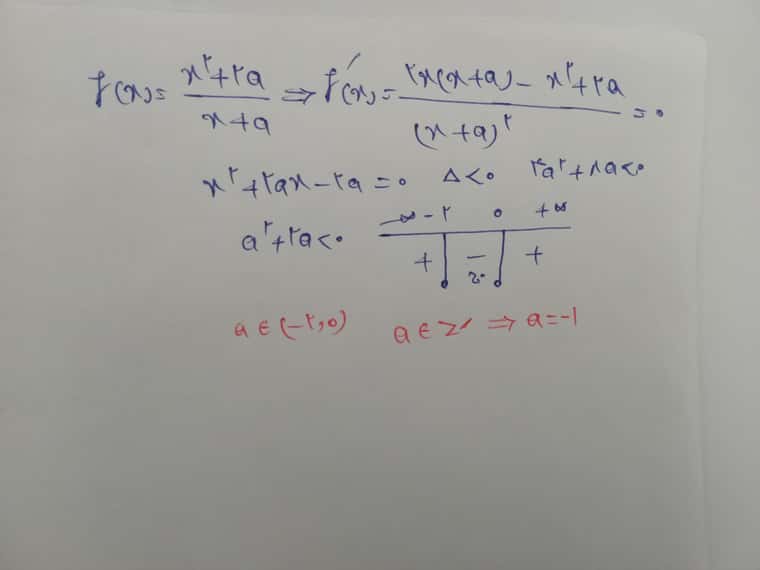 f(x)= (x^۲+۲a)/(x+a) ⇒ f′(x)= (۲x(x+a) - x^۲+۲a)/((x+a)^۲) =۰
x^۲+۲ax-۲a=۰ Δ<۰ ۴a^۲+۸a<۰
a^۲+۲a<۰ -∞ -۲ ۰ +∞
+ - +
a ∈ (-۲,۰) a ∈ Z ⇒ a=-۱